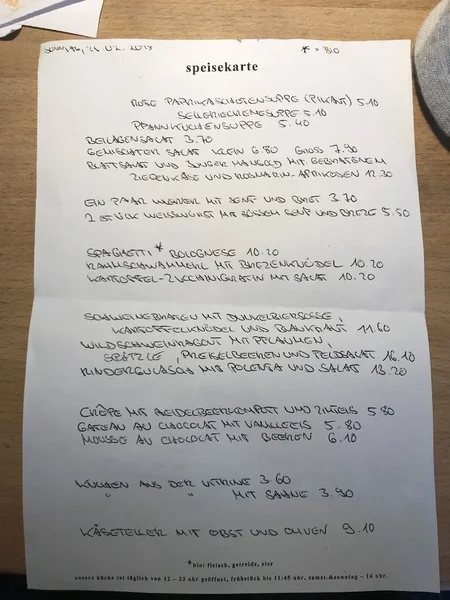 * = BIO
speisekarte
ROTE PAPRIKASCHOTENSUPPE (PIKANT) 5.10
SELLERIECREMESUPPE 5.10
PFANNKUCHENSUPPE 5.40
BEILAGENSALAT 3.70
GEMISCHTER SALAT KLEIN 6.80 GROSS 7.90
BLATTSALAT UND JUNGER MANGOLD MIT GEBRATENEM
ZIEGENKÄSE UND ROSMARIN-APRIKOSEN 12.30
EIN PAAR WIENER MIT SENF UND BROT 3.70
2 STÜCK WEISSWÜRST MIT SÜSSEM SENF UND BREZE 5.50
SPAGHETTI * BOLOGNESE 10.20
RAHMSCHWAMMERL MIT BREZENKNÖDEL 10.20
KARTOFFEL-ZUCCHINIGRATIN MIT SALAT 10.20
SCHWEINEBRATEN MIT DUNKELBIERSOSSE,
KARTOFFELKNÖDEL UND BLAUKRAUT 11.60
WILDSCHWEINRAGOUT MIT PFLAUMEN,
SPÄTZLE, PREISELBEEREN UND FELDSALAT 16.10
RINDERGULASCH MIT POLENTA UND SALAT 13.20
CRÊPE MIT HEIDELBEERKOMPOTT UND ZIMTEIS 5.80
GATEAU AU CHOCOLAT MIT VANILLEEIS 5.80
MOUSSE AU CHOCOLAT MIT BEEREN 6.10
KUCHEN AUS DER VITRINE 3.60
" " MIT SAHNE 3.90
KÄSETELLER MIT OBST UND OLIVEN 9.10
*bio: fleisch, getreide, eier
unsere küche ist täglich von 12 - 23 uhr geöffnet, frühstück bis 11:45 uhr, samst.&sonntag - 14 uhr.